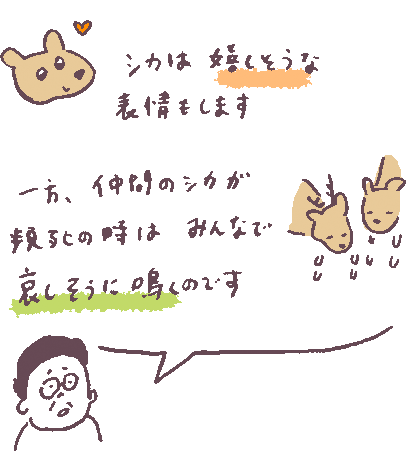 シカは 嬉しそうな
表情もします
一方、仲間のシカが
瀕死の時は みんなで
哀しそうに鳴くのです